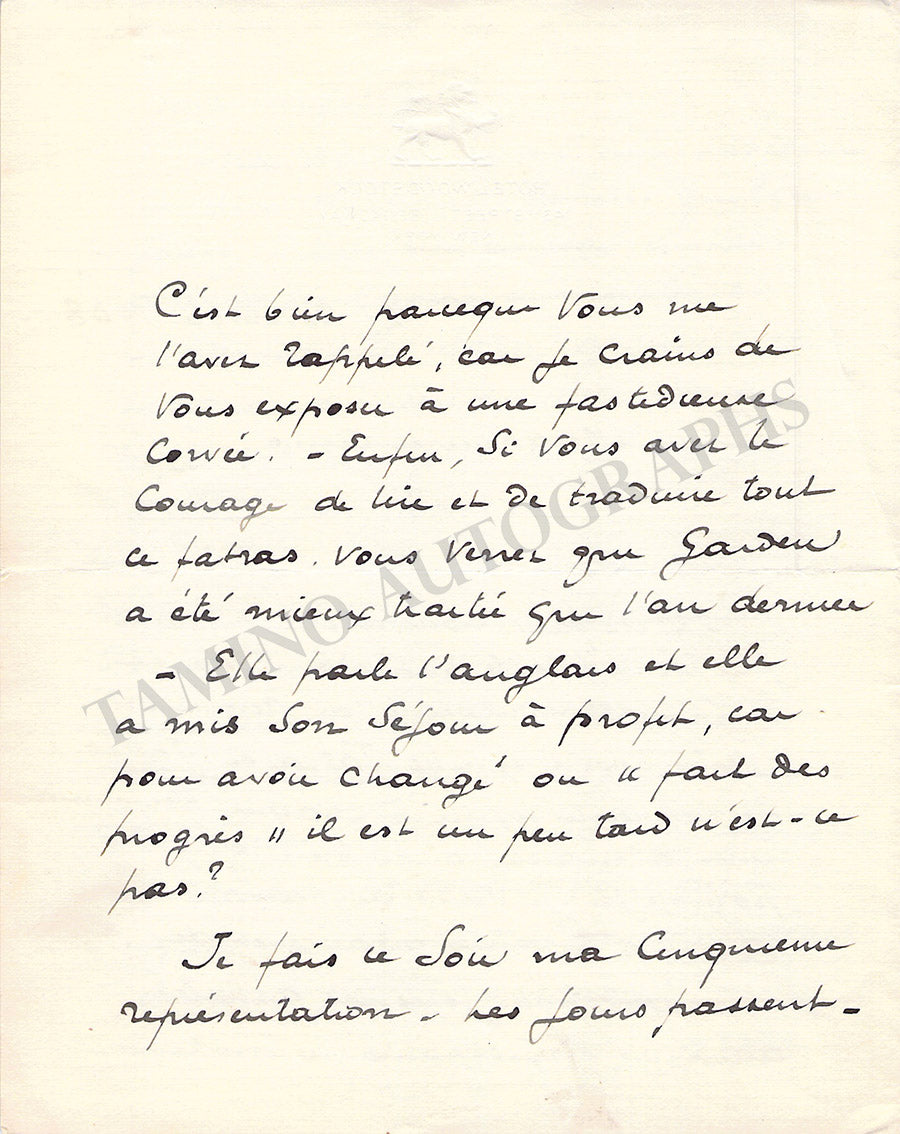 C'est bien parceque Vous me
l'avez rappelé, car je crains de
Vous exposer à une fastidieuse
Corvée. - Enfin, Si Vous avez le
Courage de lire et de traduire tout
ce fatras. Vous Verrez que Garden
a été mieux traitée que l'an dernier
- Elle parle l'anglais et elle
a mis Son Séjour à profit, car
pour avoir changé ou " fait des
progrès " il est un peu tard n'est-ce
pas?
Je fais ce Soir ma Cinquième
représentation - Les Jours passent -
TAMINO AUTOGRAPHS